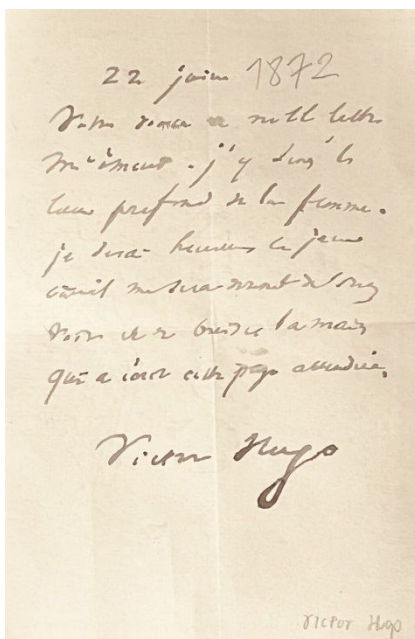 22 juin 1872
Votre douce et noble lettre
m'émeut. j'y sens le
cœur profond de la femme.
je serai heureux le jour
où il me sera donné de
vous et de baiser la main
qui a écrit cette page attendrie.
Victor Hugo
Victor Hugo